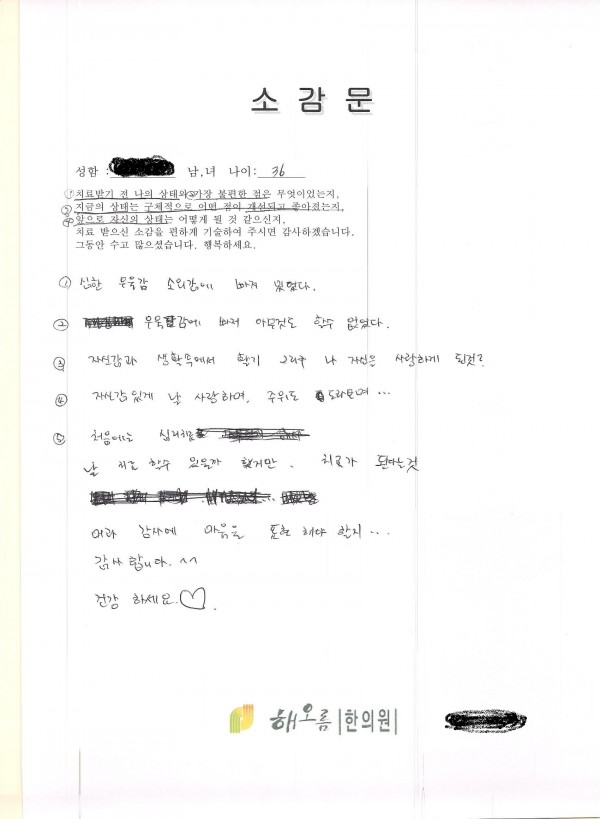 소 감 문
성함 : 남,녀 나이: 36
① 치료받기 전 나의 상태와 ② 가장 불편한 점은 무엇이었는지,
③ 지금의 상태는 구체적으로 어떤 점이 개선되고 좋아졌는지,
④ 앞으로 자신의 상태는 어떻게 될 것 같으신지,
치료 받으신 소감을 편하게 기술하여 주시면 감사하겠습니다.
그동안 수고 많으셨습니다. 행복하세요.
① 심한 우울감 소외감에 빠져 있었다.
② 감에 빠져 아무것도 할수 없었다.
③ 자신감과 생활속에서 활기 그리구 나 자신은 사랑하게 된것?
④ 자신감있게 날 사랑하며, 주위도 도라보며 ...
⑤ 처음에는 심리치료
날 치료 할수 있을까 했지만, 치료가 된다는것
감사에 마음을 표현 해야 할지 ...
감사 합니다. ^^
건강 하세요. ♡.
해오름 | 한의원 |